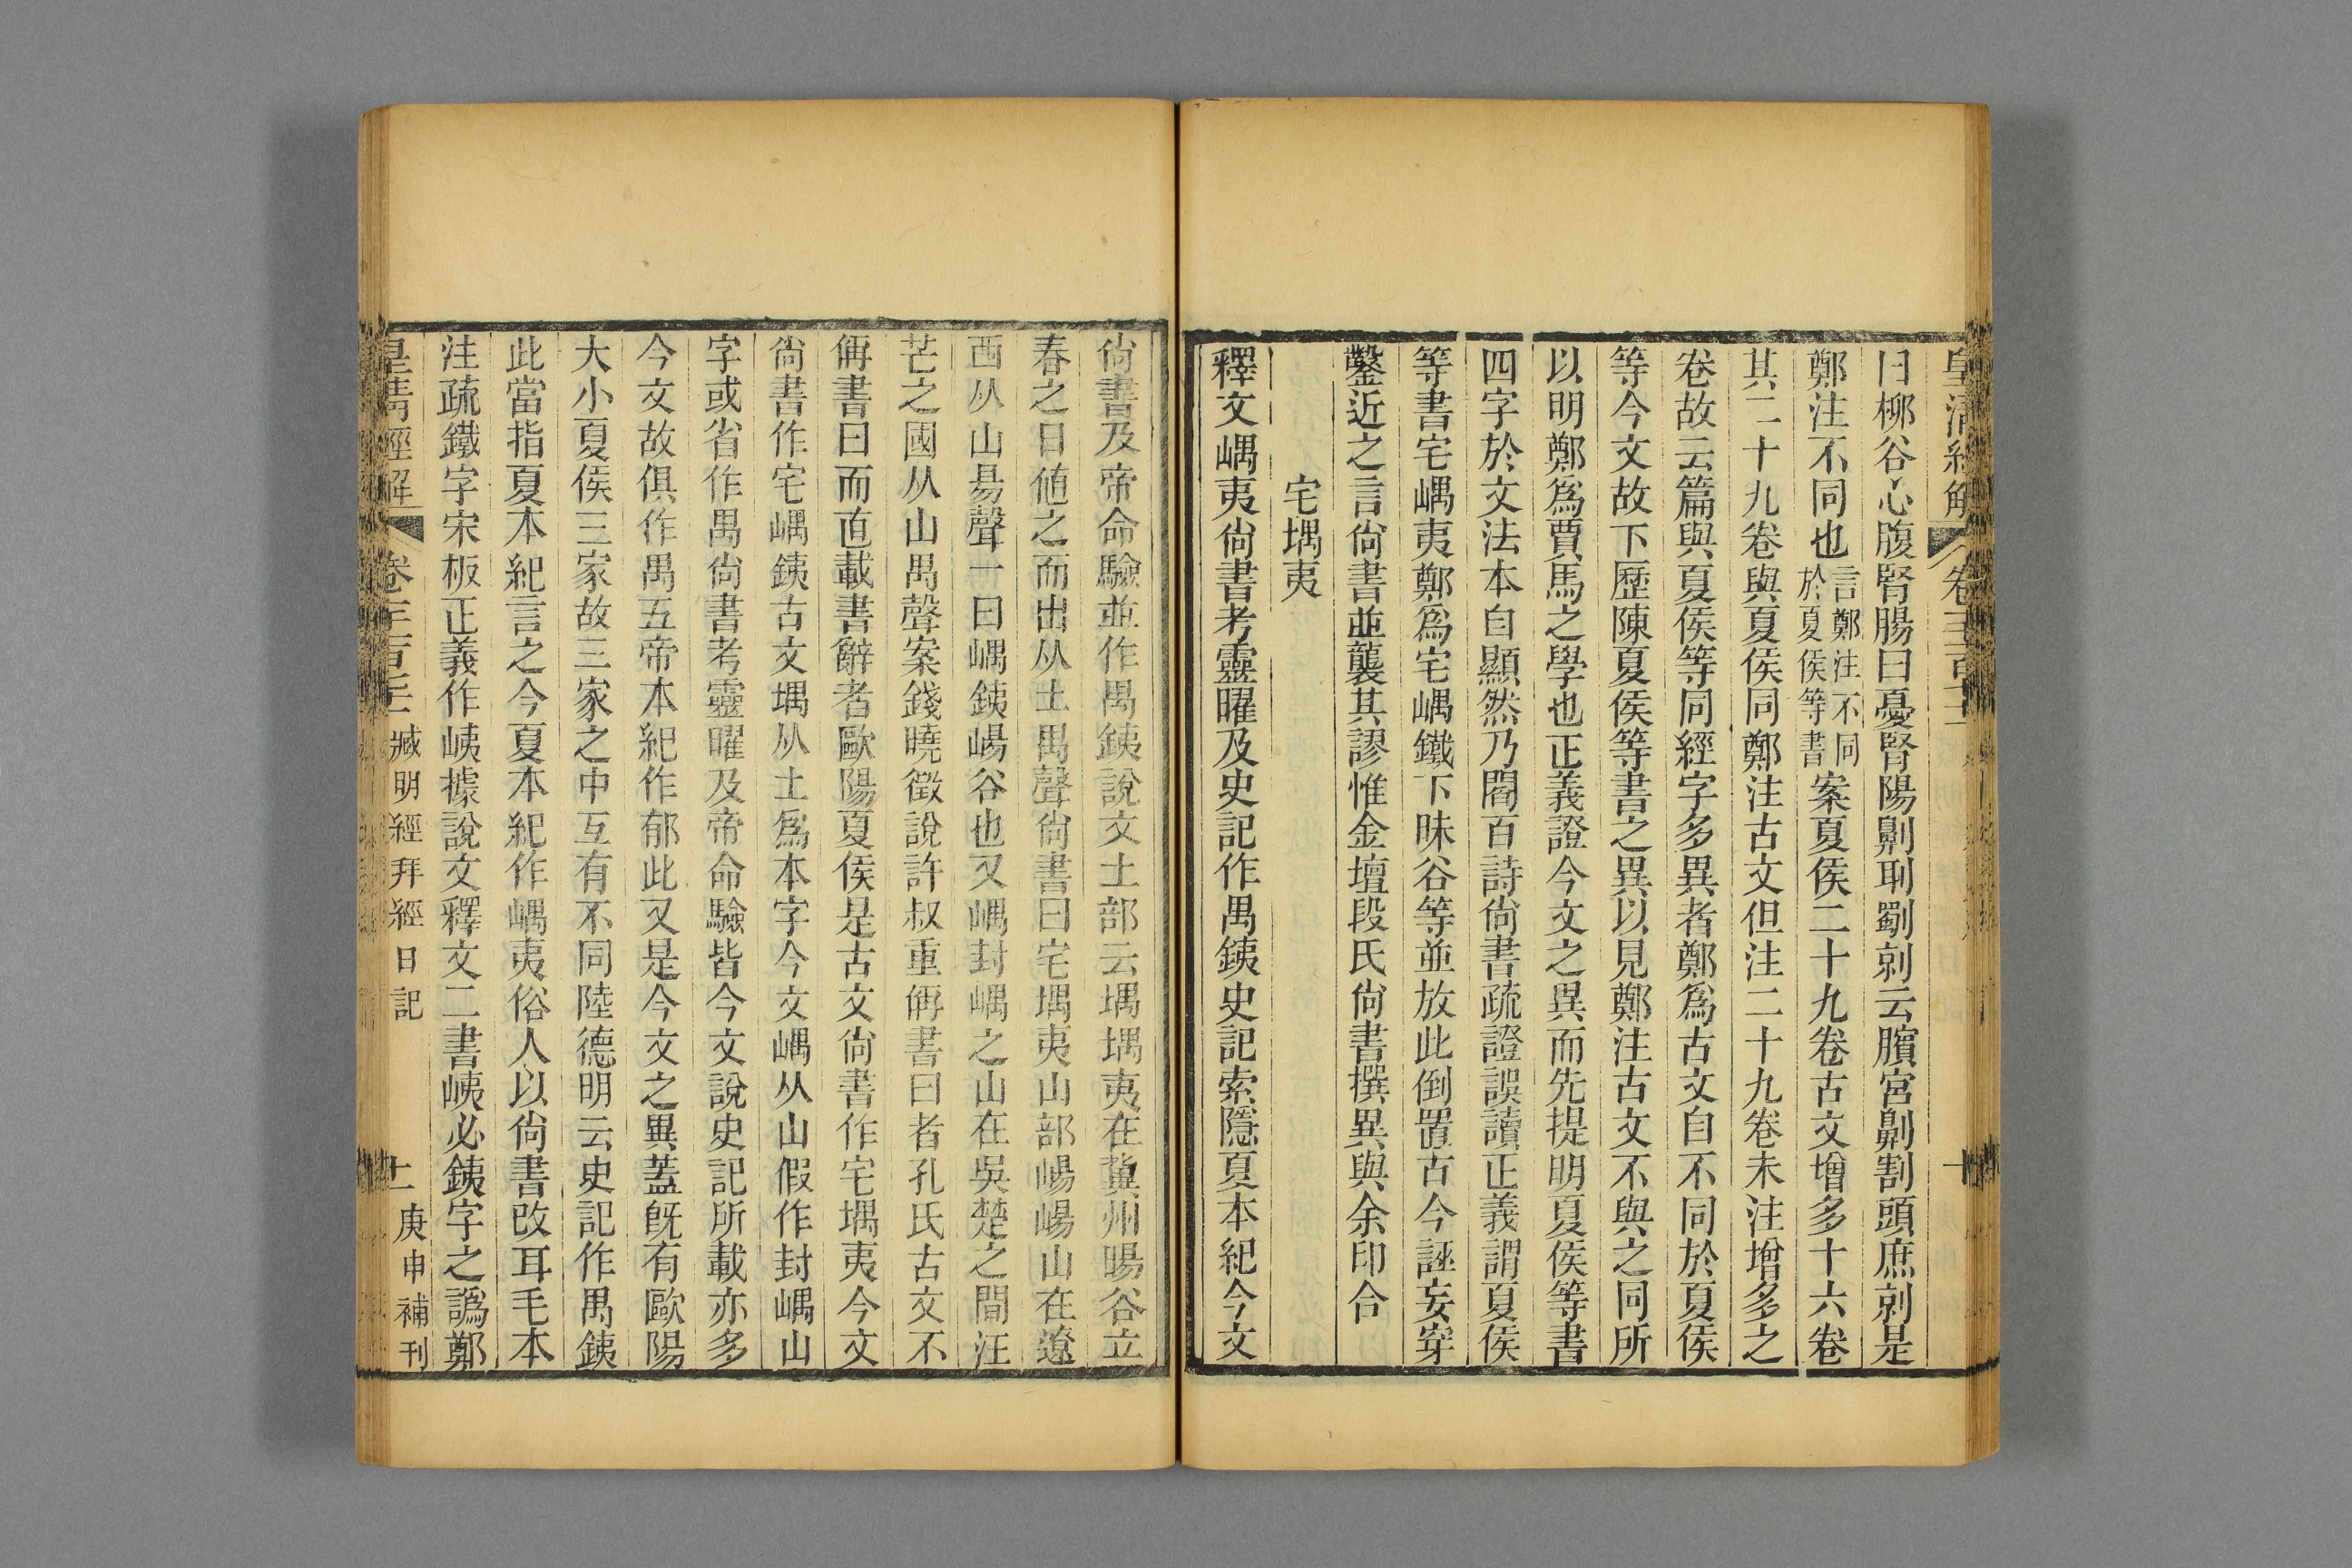 皇清經解
卷
十
曰柳谷心腹腎腸曰憂腎陽劓刵劅剠云臏宮劓割頭庶剠是
鄭注不同也言鄭注不同於夏侯等書案夏侯二十九卷古文增多十六卷
其二十九卷與夏侯同鄭注古文但注二十九卷未注增多之
卷故云篇與夏侯等同經字多異者鄭爲古文自不同於夏侯
等今文故下歷陳夏侯等書之異以見鄭注古文不與之同所
以明鄭爲賈馬之學也正義證今文之異而先提明夏侯等書
四字於文法本自顯然乃閻百詩尙書疏證誤讀正義謂夏侯
等書宅嵎夷鄭爲宅嵎鐵下昧谷等並放此倒置古今誣妄穿
鑿近之言尙書並襲其謬惟金壇段氏尙書撰異與余印合
宅堣夷
釋文嵎夷尙書考靈曜及史記作禺銕史記索隱夏本紀今文
尙書及帝命驗並作禺銕說文土部云堣堣夷在冀州暘谷立
春之日値之而出从土禺聲尙書曰宅堣夷山部崵崵山在遼
西从山昜聲一曰嵎銕崵谷也又嵎封嵎之山在吳楚之閒汪
芒之國从山禺聲案錢曉徵說許叔重偁書曰者孔氏古文不
偁書曰而直載書辭者歐陽夏侯是古文尙書作宅堣夷今文
尙書作宅嵎銕古文堣从土爲本字今文嵎从山假作封嵎山
字或省作禺尙書考靈曜及帝命驗皆今文說史記所載亦多
今文故俱作禺五帝本紀作郁此又是今文之異蓋旣有歐陽
大小夏侯三家故三家之中互有不同陸德明云史記作禺銕
此當指夏本紀言之今夏本紀作嵎夷俗人以尙書改耳毛本
注疏鐵字宋板正義作峓據說文釋文二書峓必銕字之譌鄭
皇清經解
卷
臧明經拜經日記
十一
庚申補刊